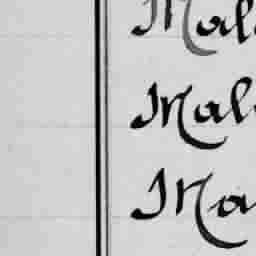 Mal
Mal
Ma